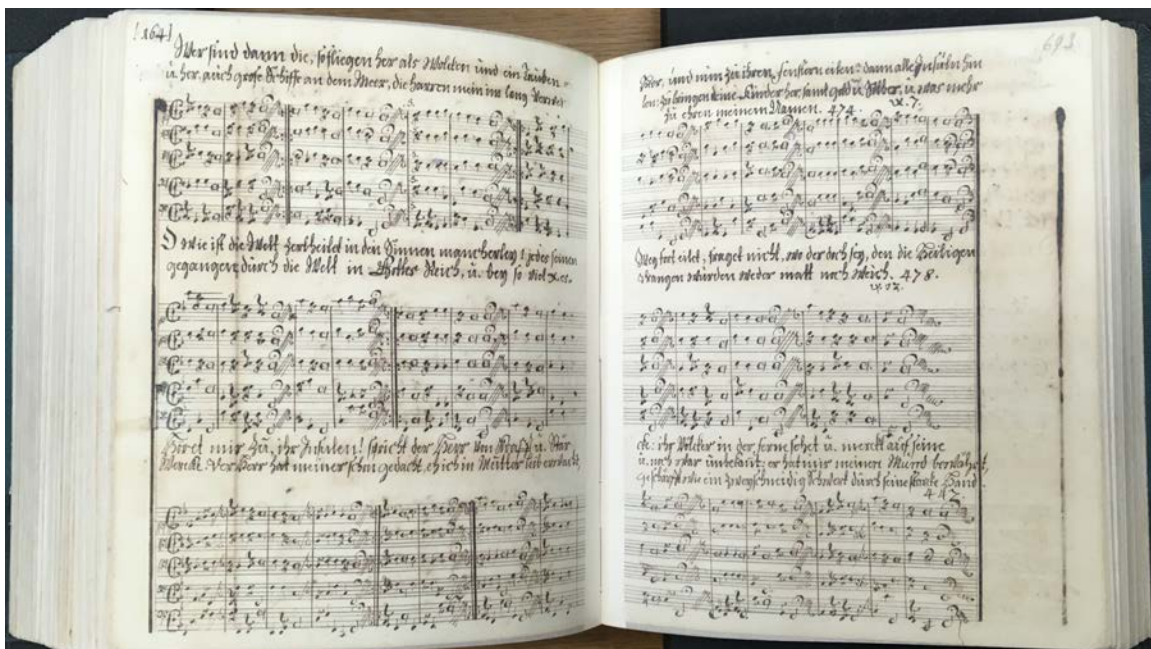 [164]
Wer sind dann die, so fliegen her als Wolcken und ein Tauben-
u. her, auch große Schiffe an dem Meer, die harren mein in lang
O wie ist die Welt zertheilet in den Sinnen mancherley! jedes seinen
gegangen durch die Welt in Gottes Reich, u. bey so viel
Höret mir zu, ihr Insulen! spricht der Herr von Krafft u. Stär
Wercke. Der Herr hat meiner schon gedacht, eh ich in Mutter leib
693
Heer, und nun zu ihren Fenstern eilen: dann alle Insulen hin
len: zu bringen deine Kinder her, samt gold u. Silber, u. was mehr
zu ehren meinem Namen. 474.
v. 7.
Weg fort eilet, fraget nicht, wo der doch sey, den die Heiligen
drangen wurden weder matt noch weich. 478.
cke: ihr Völcker in der ferne sehet u. merckt auf seine
u. noch war unbekant: er hat mir meinen Mund
geschärfft wie ein zweyschneidig Schwert durch seine starcke Hand.
447.